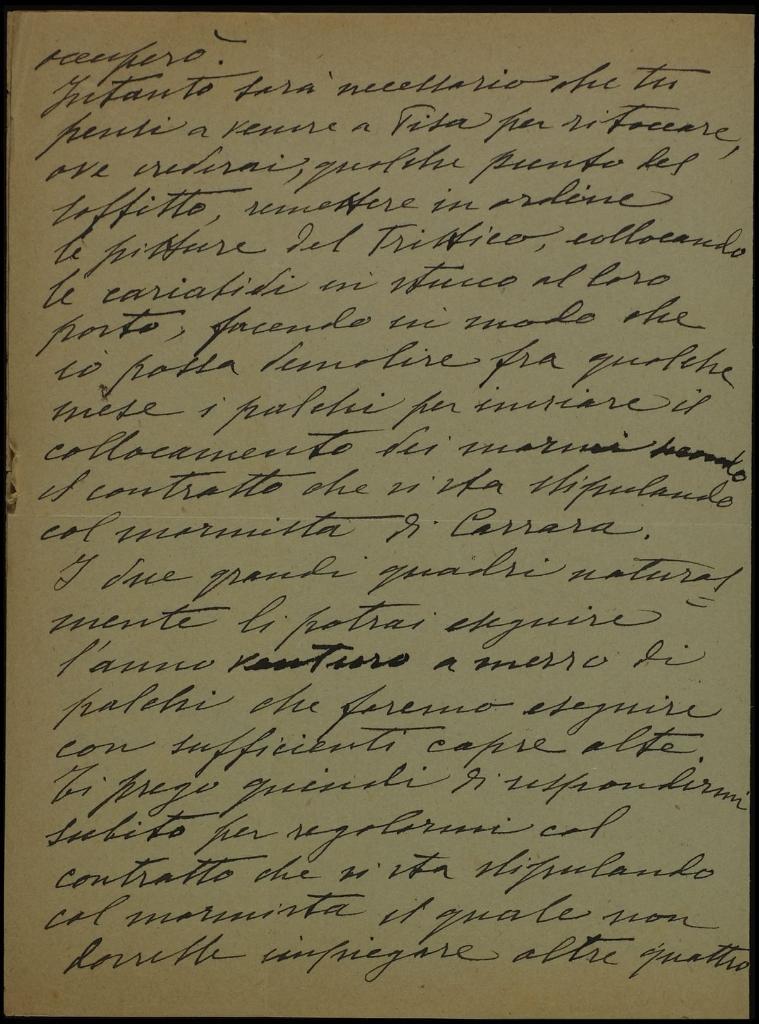 occuperò.
Intanto sarà necessario che tu
pensi a venire a Pisa per ritoccare,
ove crederai, qualche punto del
soffitto, remettere in ordine
le pitture del Trittico, collocando
le cariatidi in stucco al loro
posto, facendo in modo che
io possa demolire fra qualche
mese i palchi per iniziare il
collocamento dei marmi
il contratto che si sta stipulando
col marmista di Carrara.
I due grandi quadri natural=
mente li potrai eseguire
l'anno venturo a mezzo di
palchi che faremo eseguire
con sufficienti capre alte.
Ti prego quindi di rispondermi
subito per regolarmi col
contratto che si sta stipulando
col marmista il quale non
dovrebbe impiegare oltre quattro